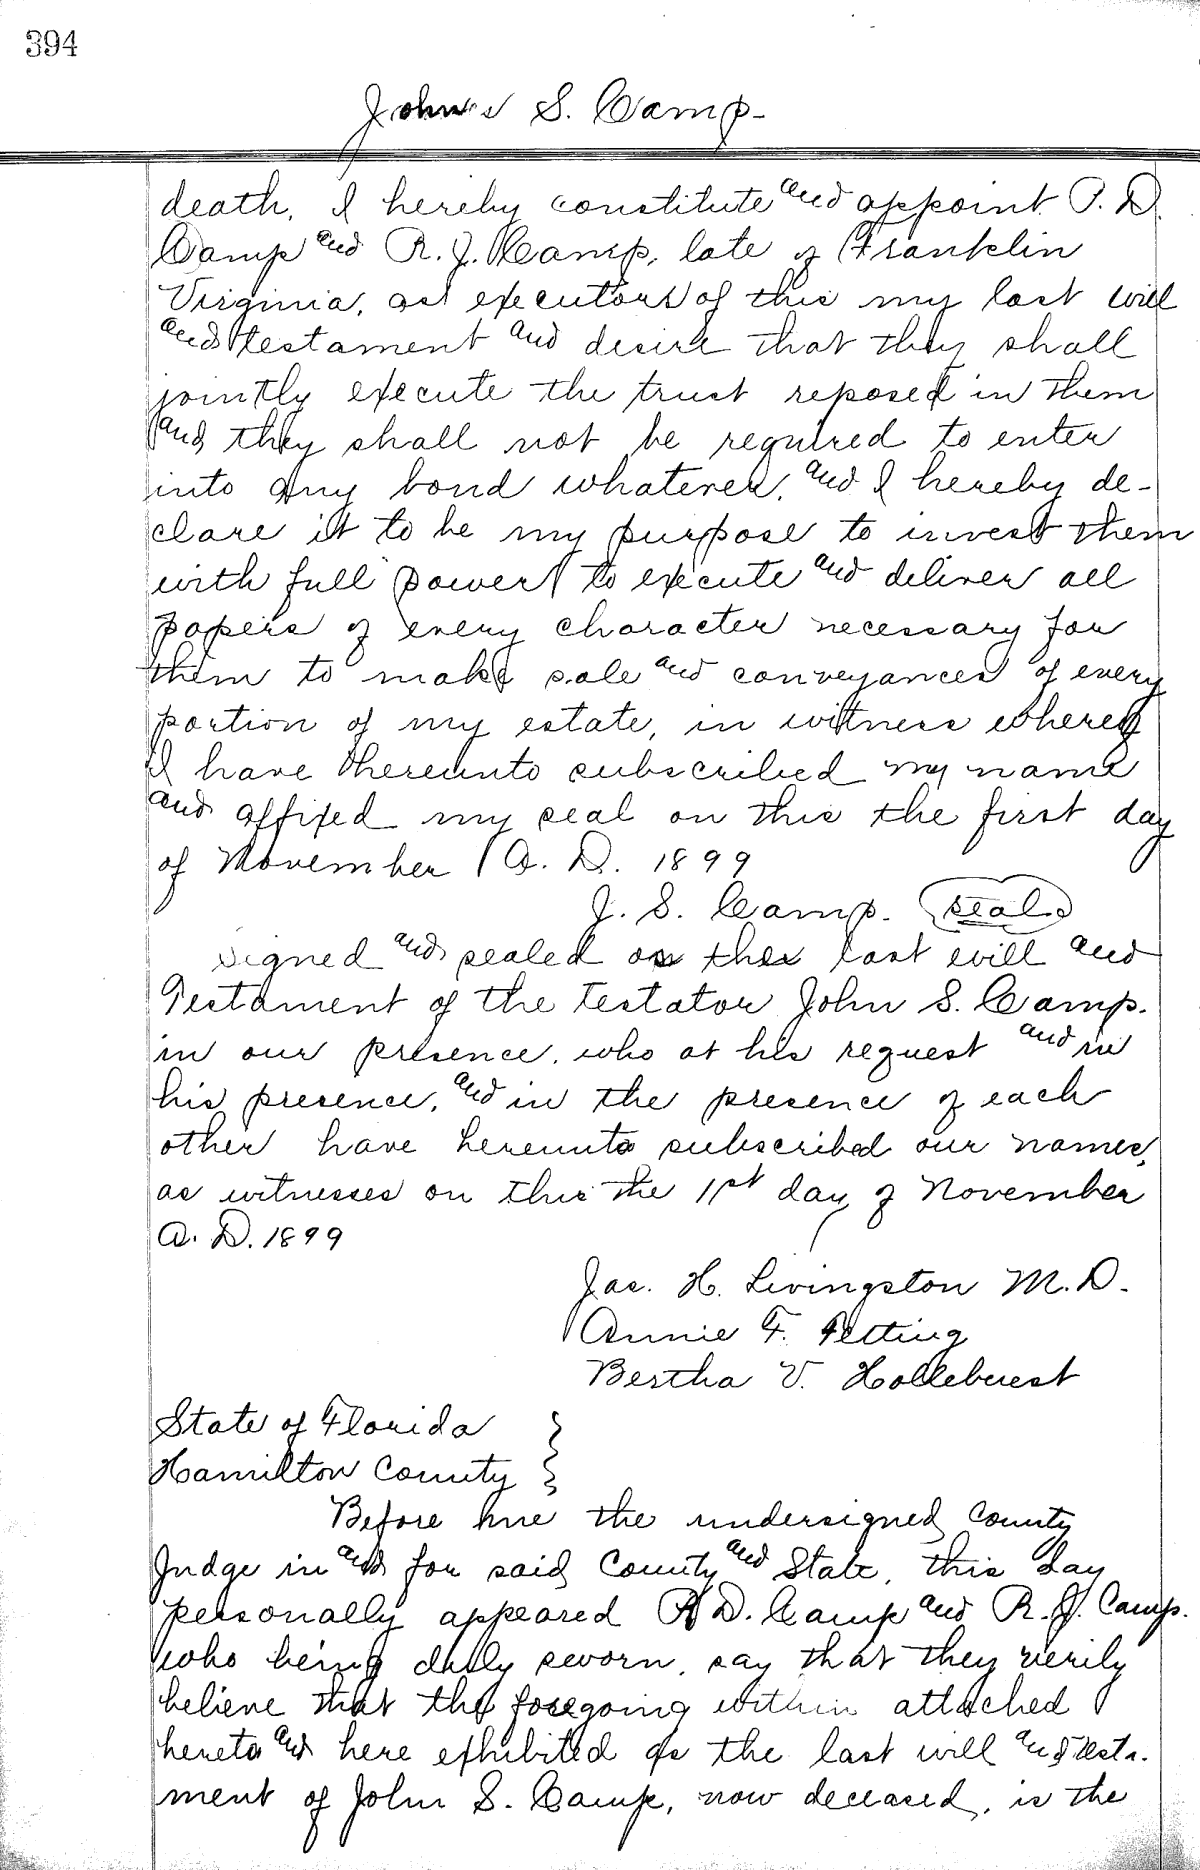 394
John S. Camp-
death. I hereby constitute and appoint P. D.
Camp and R. J. Camp, late of Franklin
Virginia, as executors of this my last will
and testament and desire that they shall
jointly execute the trust reposed in them
and they shall not be required to enter
into any bond whatever, and I hereby de-
clare it to be my purpose to invest them
with full power to execute and deliver all
papers of every character necessary for
them to make sale and conveyances of every
portion of my estate, in witness whereof
I have thereunto subscribed my name
and affixed my seal on this the first day
of November A. D. 1899
J. S. Camp. seal
Signed and sealed as the last will and
Testament of the Testator John S. Camp.
in our presence, who at his request and in
his presence, and in the presence of each
other have hereunto subscribed our names,
as witnesses on this the 1st day of November
A. D. 1899
Jas. H. Livingston M. D.
Annie F. Fetting
Bertha V.
State of Florida
Hamilton County
Before me the undersigned County
Judge in and for said County and State, this day
personally appeared P. D. Camp and R. J. Camp.
who being duly sworn, say that they verily
believe that the foregoing within attached
hereto and here exhibited as the last will and testa-
ment of John S. Camp, now deceased, is the